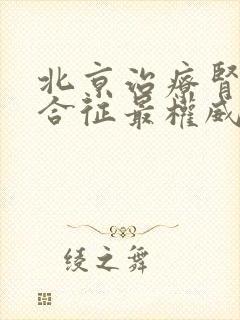 北京治療腎
合征最權威
綾之舞